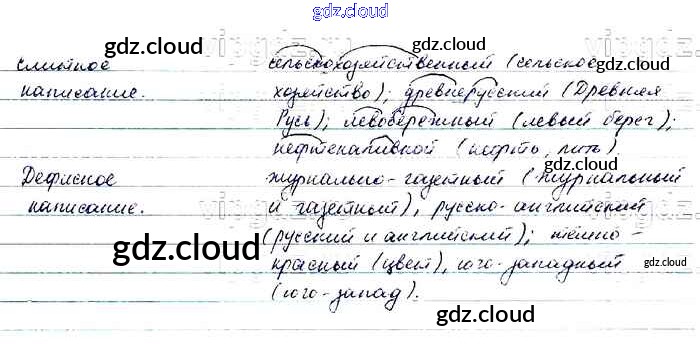 gdz.cloud
gdz.cloud gdz.cloud
слитное сельскохозяйственный (сельское
gdz.cloud
написание. хозяйство); древнерусский (Древняя
Русь); левобережный (левый берег);
нефтеналивной (нефть, лить)
gdz.cloud
Дефисное журнально-газетный (журнальный
написание. и газетный), русско-английский
gdz.cloud (русский и английский); тёмно-
красный (цвет), юго-западный gdz.cloud
gdz.cloud (юго-запад).
gdz.cloud